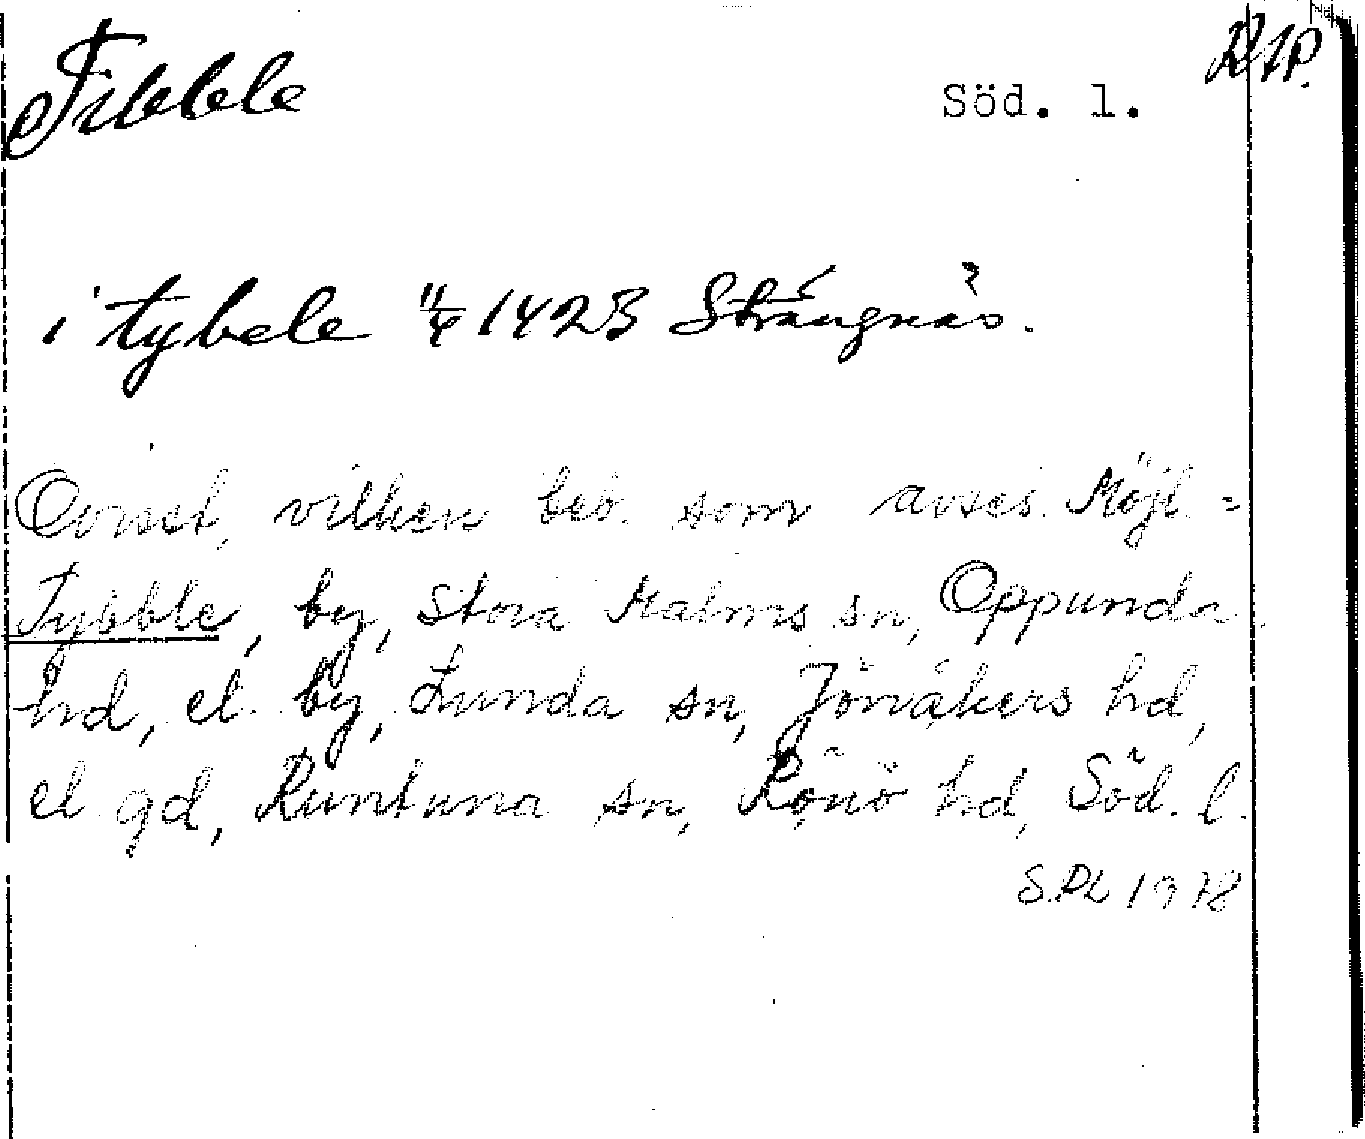 Tibble
Söd. l.
RAP.
i tybele 11/4 1423 Strängnäs.
Ovisst, vilken beb. som avses. Möjl. =
Tybble, by, Stora Malms sn, Oppunda
hd, el. by, Lunda sn, Jönåkers hd,
el gd, Runtuna sn, Rönö hd, Söd. l.
S.PL 1978